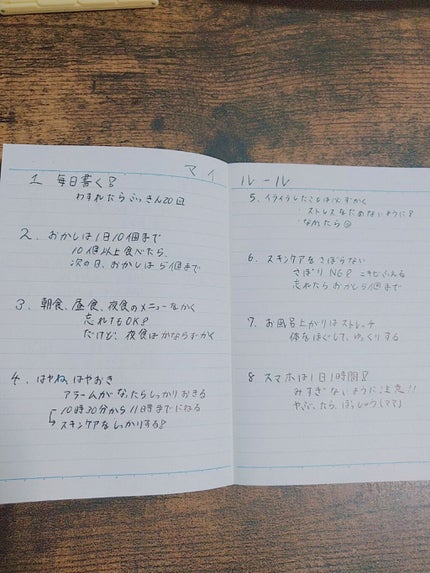 マイルール
1 毎日書く!
わすれたらふっきん20回
2. おかしは1日10個まで
10個以上食べたら、
次の日、おかしは5個まで
3. 朝食、昼食、夜食のメニューをかく
忘れてもOK!
だけど、夜食はかならずかく
4. はやね、はやおき
アラームがなったらしっかりおきる
10時30分から11時までにねる
スキンケアをしっかりする!
5. イライラしたことは必ずかく
ストレスをためないように!
なおったら
6. スキンケアをさぼらない
さぼりNG!
忘れたらおかし5個まで
7. お風呂上がりはストレッチ
体をほぐして、ゆっくりする
8 スマホは1日1時間!
みすぎないように注意!!
やぶったら、ぼっしゅう(ママ)